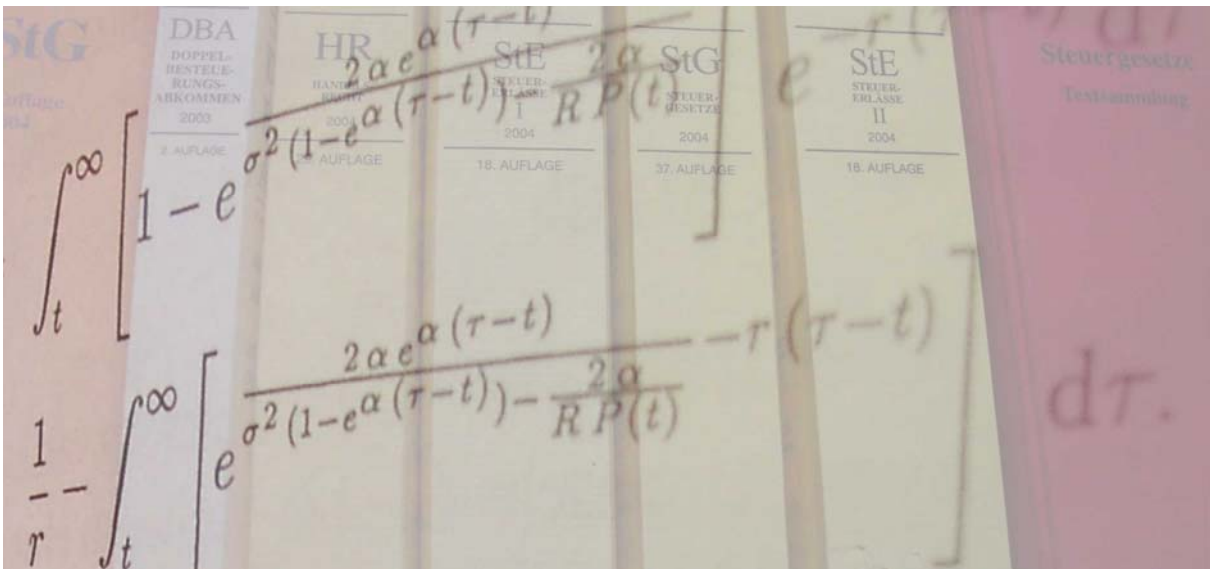 StG
DBA
DOPPEL-
BESTEUE-
RUNGS-
ABKOMMEN
2003
2. AUFLAGE
HR
2004
AUFLAGE
StE
STEUER-
ERLÄSSE
I
2004
18. AUFLAGE
StG
STEUER-
GESETZE
2004
37. AUFLAGE
StE
STEUER-
ERLÄSSE
II
2004
18. AUFLAGE
Steuergesetze
Textsammlung
∫_t^∞ [1 − e^{2 α e^{α (τ−t)} / (σ² (1−e^{α (τ−t)}) − 2 α / (R P(t)))}] e^{−r (τ−t)} dτ
1/r − ∫_t^∞ [e^{2 α e^{α (τ−t)} / (σ² (1−e^{α (τ−t)}) − 2 α / (R P(t))) − r (τ−t)}] dτ.